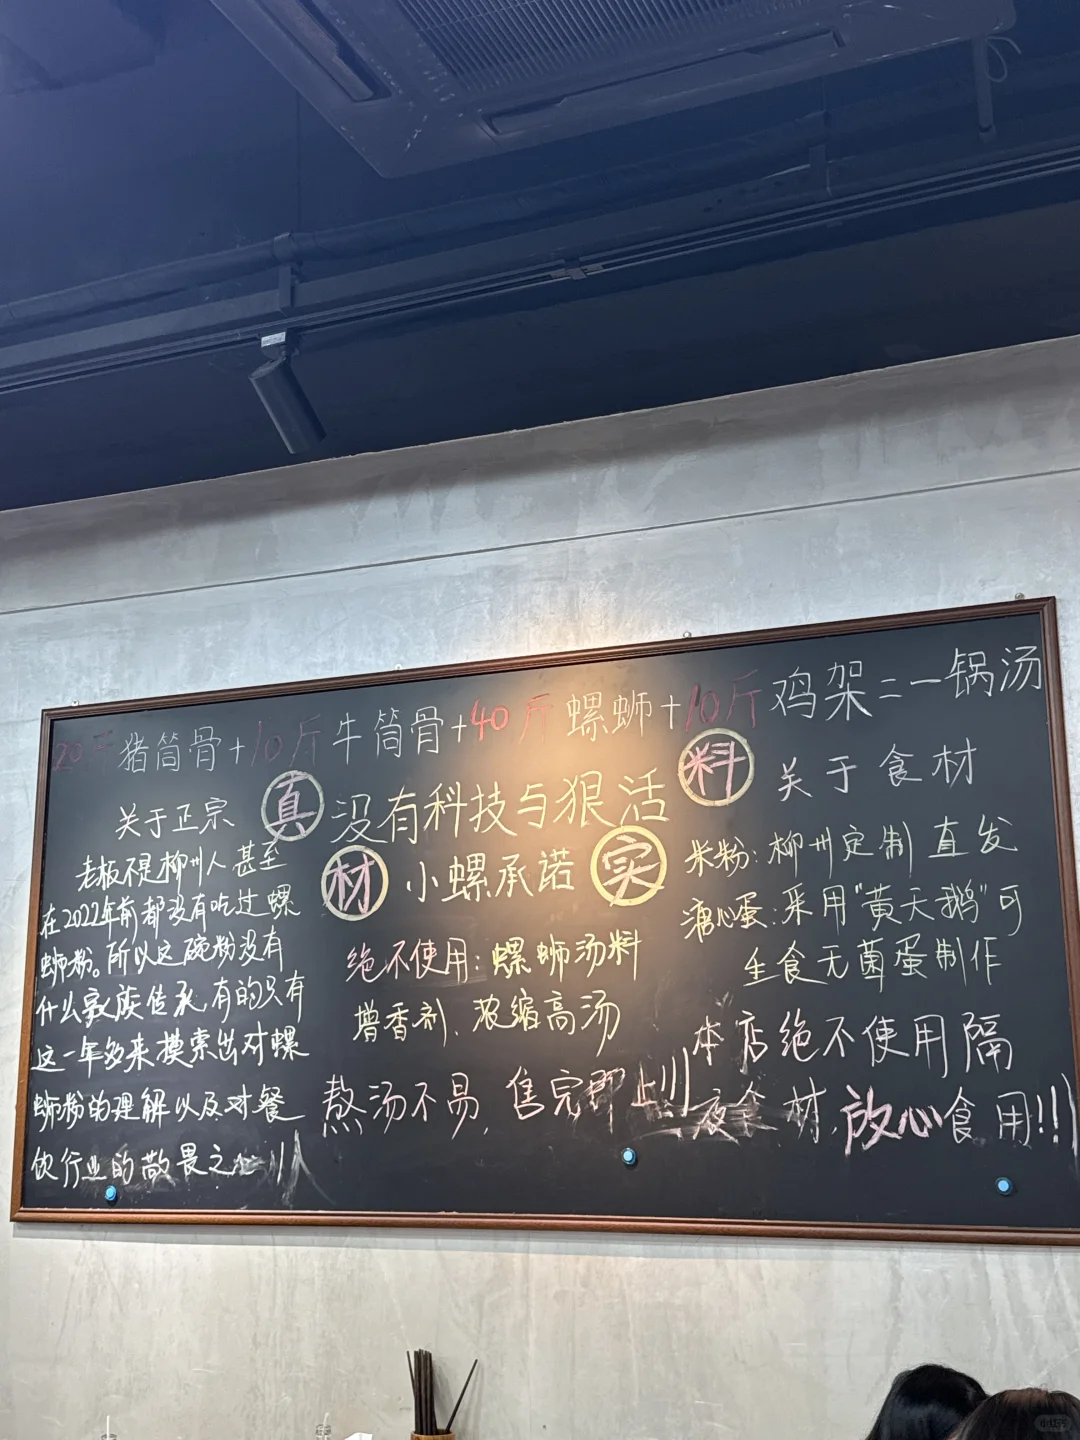 20斤猪筒骨+10斤牛筒骨+40斤螺蛳+10斤鸡架=一锅汤
关于正宗
老板不是柳州人甚至
在2022年前都没有吃过螺
蛳粉。所以这碗粉没有
什么家族传承,有的只有
这一年多来摸索出对螺
蛳粉的理解以及对餐
饮行业的敬畏之心!!
真 没有科技与狠活 料
材 小螺承诺 实
绝不使用:螺蛳汤料
增香剂、浓缩高汤
熬汤不易,售完即止!!!
关于食材
米粉:柳州定制直发
溏心蛋:采用"黄天鹅"可
生食无菌蛋制作
本店绝不使用隔
夜食材,放心食用!!
小红书